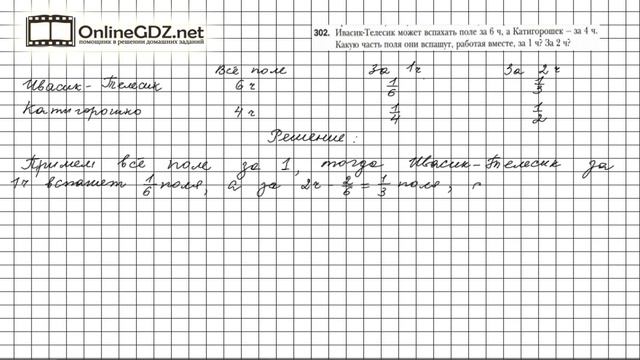 OnlineGDZ.net
помощник в решении домашних заданий
302. Ивасик-Телесик может вспахать поле за 6 ч, а Катигорошек – за 4 ч.
Какую часть поля они вспашут, работая вместе, за 1 ч? За 2 ч?
Всё поле За 1ч За 2 ч
Ивасик-Телесик 6 ч 1/6 1/3
Катигорошко 4 ч 1/4 1/2
Решение:
Примем всё поле за 1, тогда Ивасик-Телесик за
1ч вспашет 1/6 поля, а за 2ч - 2/6 = 1/3 поля,